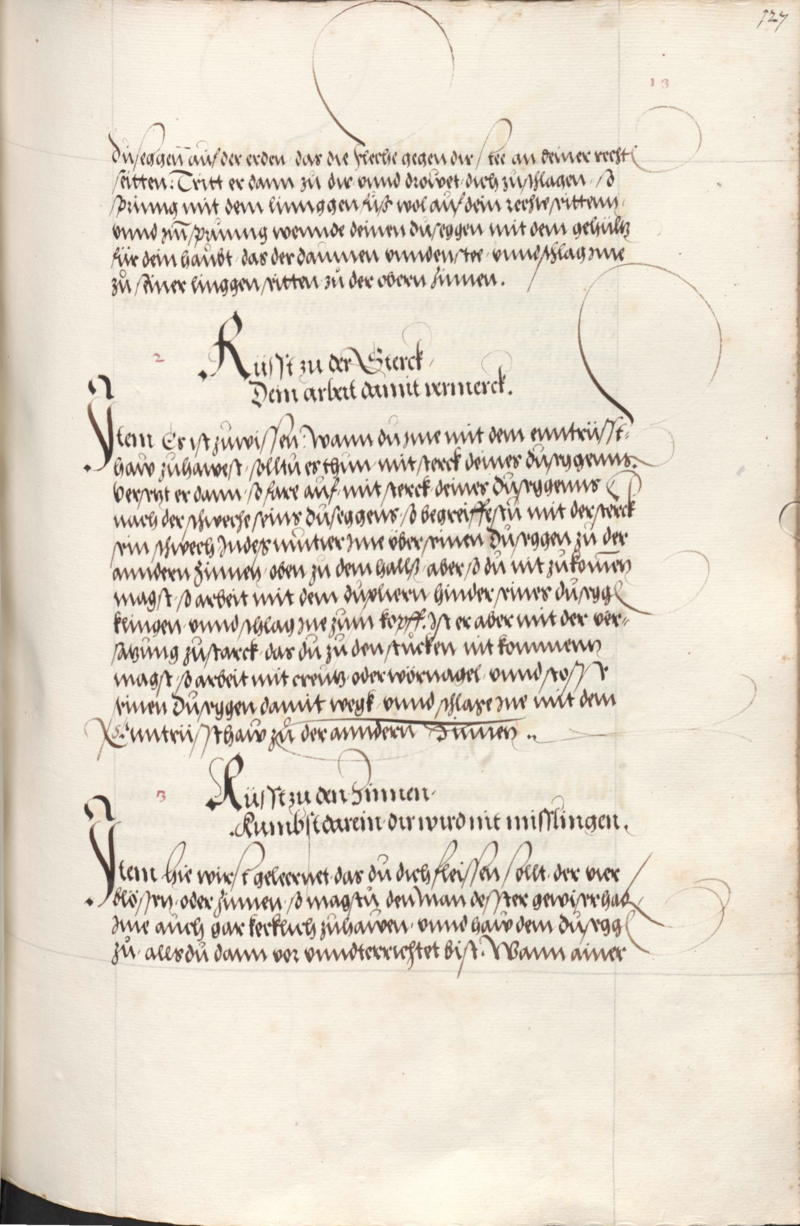 127
13
duseggenn auf der erden das die fleche gegen dir stee an deiner recht
seitten. Tritt er dann zu dir vnnd drowet dich zuschlagen so
spring mit dem linnggen fuß wol auf dein rechte seittenn
vnnd im sprunng wennde deinen duseggen mit dem gehültz
für dein haubt das der daumen vnnden stee vnnd schlag ime
zu seiner linggen seitten zů der obern zinnen.
2
Rüsst zu der Sterck
Dein arbeit damit vermerck.
Item Es ist zuwissen. Wann du ime mit dem enntrüsst-
haw zuhawest solltu es thun mit sterck deines duseggenns
Versetzt er dann so fare auf mit sterck deines duseggenns
nach der schweche seins duseggens so begreiffestu mit der sterck
sein schwech Indes mutier Ime vber seinen duseggen zu der
anndern zinnen oben zu dem hallß aber so du nit zukomen
magst so arbeit mit dem dupliern hinder seines dusegg
klingen vnnd schlag ime zum kopff. Ist er aber mit der ver-
satzung zustarck das du zu den stucken nit kommenn
magst so arbeit mit creutz oder wörnagel vnnd stosse
seinen duseggen damit wegk vnnd schlage ime mit dem
Enntrüssthaw zů der anndern Zinnen ..
3
Rüsst zu den Zinnen
Kumbst darein dir wird nit misslingen.
Item hie wirst geleernet das du dich fleissen sollt der vier
blössen oder zinnen so magstu den man desster gewiser hab
Ime auch gar kecklich zuhawen vnnd haw dem dusegg
zů alls du dann vor vnndterrichtet bist. Wann ainer